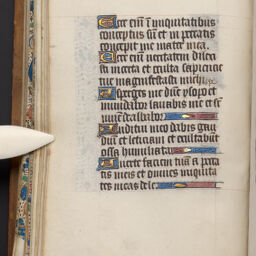 Ecce enim in iniquitatibus
conceptus sum et in peccatis
concepit me mater mea.
Ecce enim veritatem dilexi
sti incerta et occulta sapiencie
tue manifestasti michi.
Asperges me domine ysopo et
mundabor lavabis me et su
nivem dealbabor
Auditui meo dabis gau
dium et leticiam et exultabunt
ossa humiliata
Averte faciem tuam a pecca
tis meis et omnes iniquita
tes meas dele